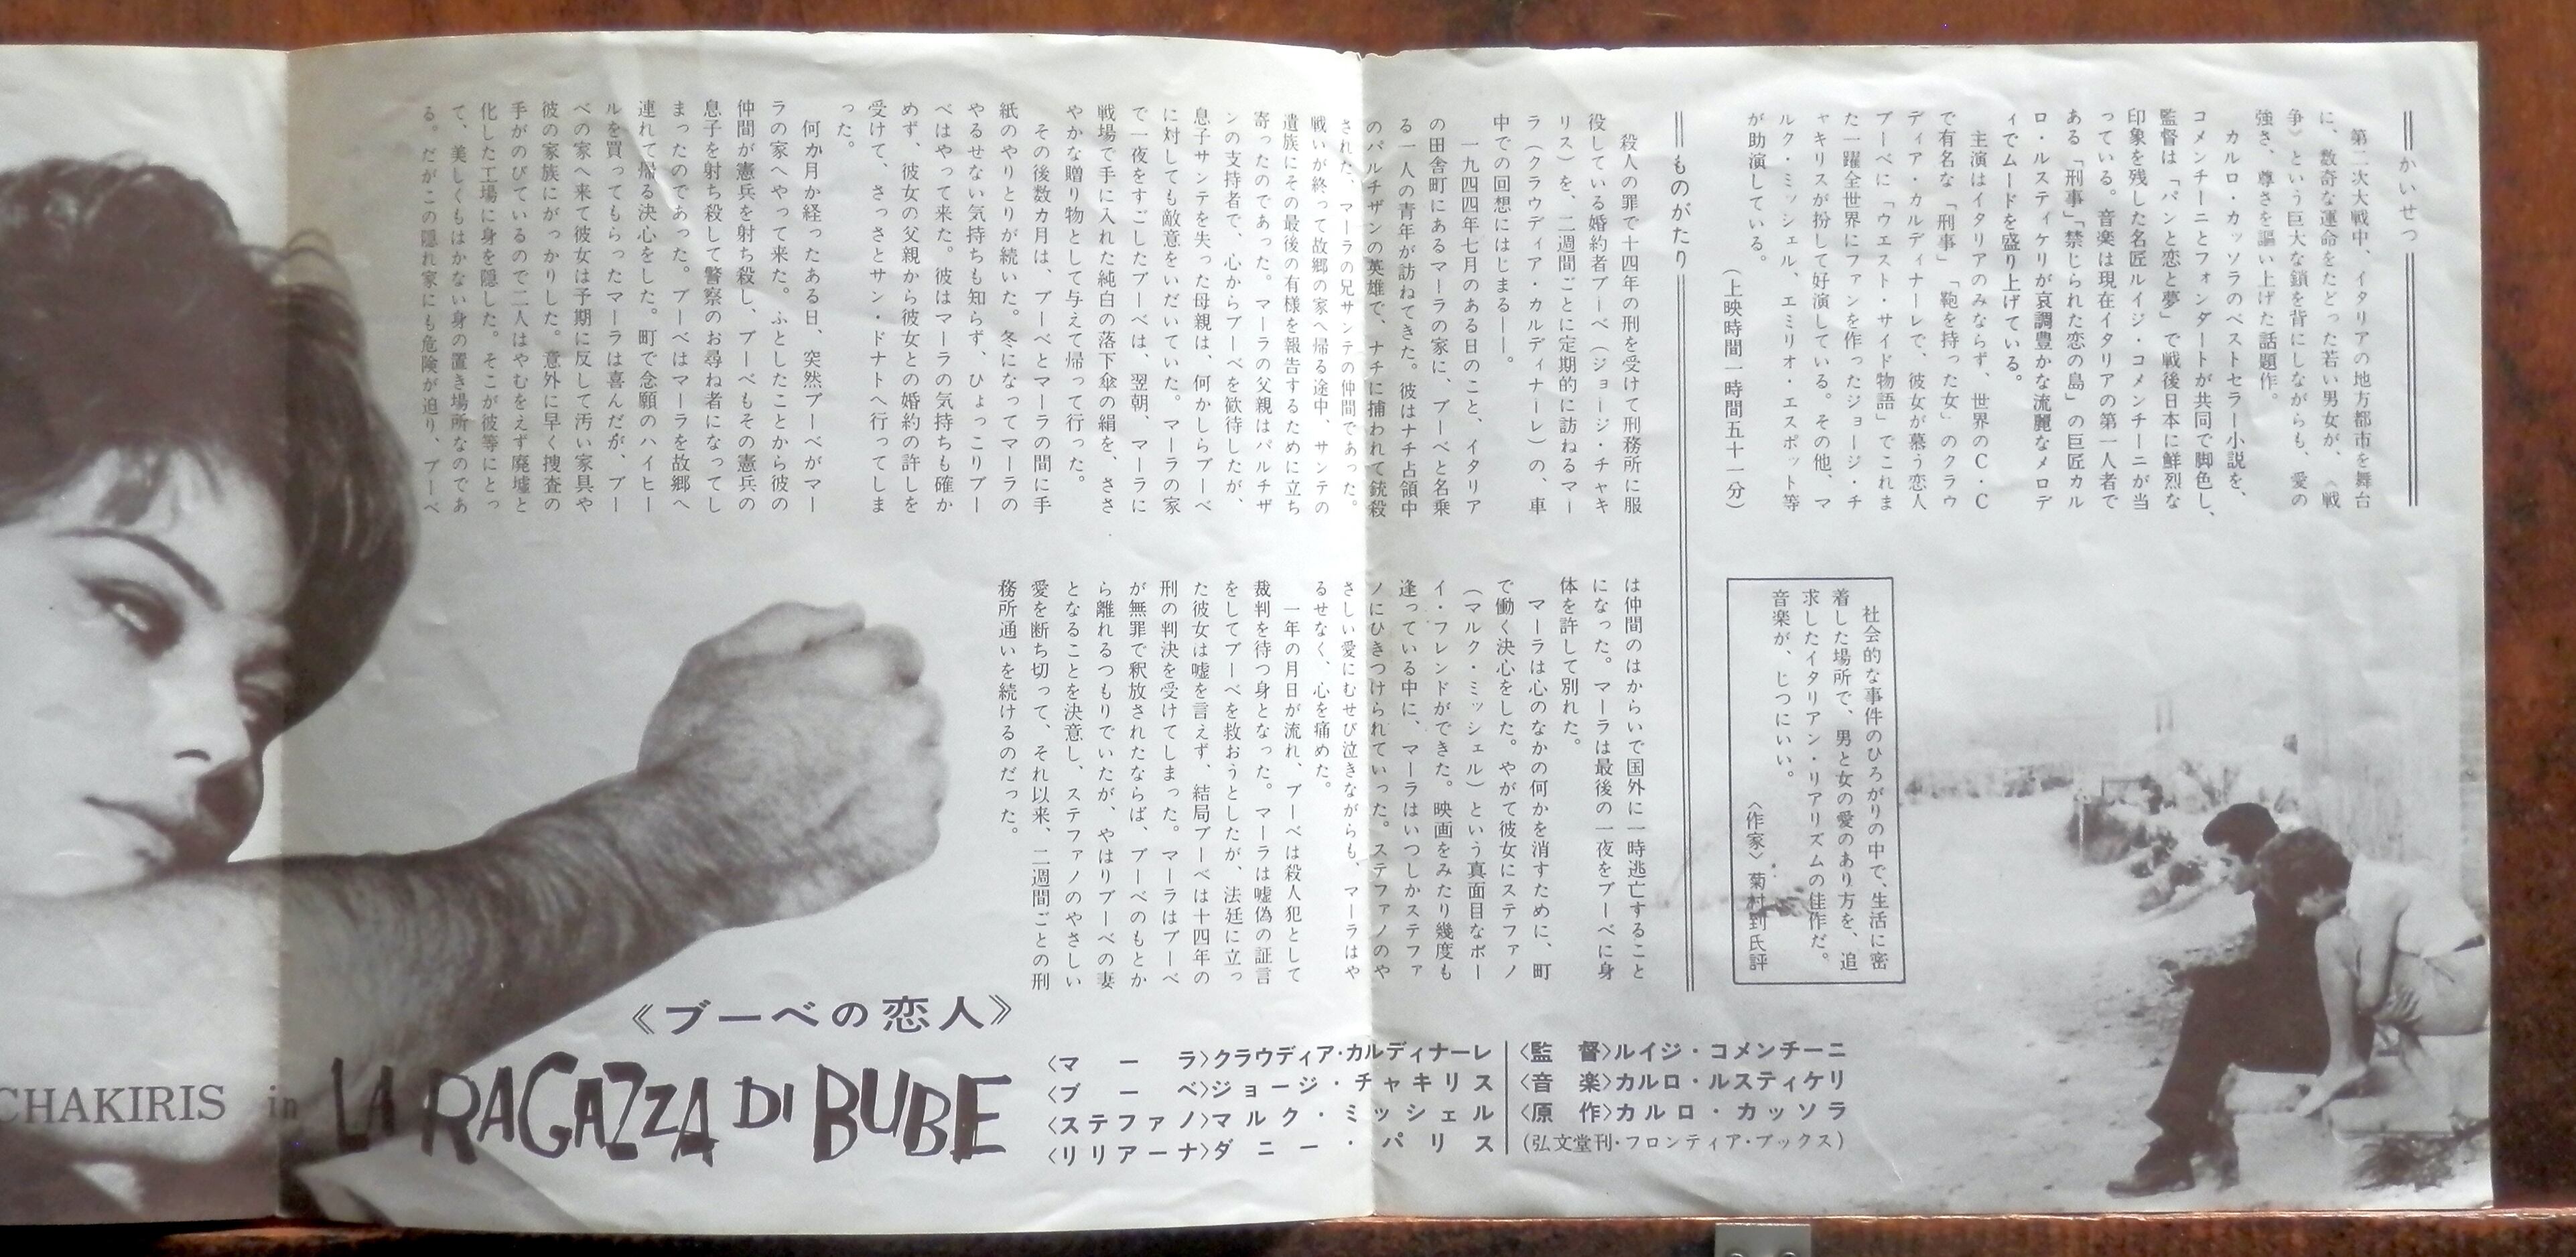 かいせつ
第二次大戦中、イタリアの地方都市を舞台
に、数奇な運命をたどった若い男女が、〈戦
争〉という巨大な鎖を背にしながらも、愛の
強さ、尊さを謳い上げた話題作。
カルロ・カッソラのベストセラー小説を、
コメンチーニとフォンダートが共同で脚色し、
監督は「パンと恋と夢」で戦後日本に鮮烈な
印象を残した名匠ルイジ・コメンチーニが当
っている。音楽は現在イタリアの第一人者で
ある「刑事」「禁じられた恋の島」の巨匠カル
ロ・ルスティケリが哀調豊かな流麗なメロデ
ィでムードを盛り上げている。
主演はイタリアのみならず、世界のC・C
で有名な「刑事」「鞄を持った女」のクラウ
ディア・カルディナーレで、彼女が慕う恋人
ブーベに「ウエスト・サイド物語」でこれま
た一躍全世界にファンを作ったジョージ・チ
ャキリスが扮して好演している。その他、マ
ルク・ミッシェル、エミリオ・エスポット等
が助演している。
（上映時間一時間五十一分）
社会的な事件のひろがりの中で、生活に密
着した場所で、男と女の愛のあり方を、追
求したイタリアン・リアリズムの佳作だ。
音楽が、じつにいい。
〈作家〉菊村到氏評
ものがたり
殺人の罪で十四年の刑を受けて刑務所に服
役している婚約者ブーベ（ジョージ・チャキ
リス）を、二週間ごとに定期的に訪ねるマー
ラ（クラウディア・カルディナーレ）の、車
中での回想にはじまる――。
一九四四年七月のある日のこと、イタリア
の田舎町にあるマーラの家に、ブーベと名乗
る一人の青年が訪ねてきた。彼はナチ占領中
のパルチザンの英雄で、ナチに捕われて銃殺
された、マーラの兄サンテの仲間であった。
戦いが終って故郷の家へ帰る途中、サンテの
遺族にその最後の有様を報告するために立ち
寄ったのであった。マーラの父親はパルチザ
ンの支持者で、心からブーベを歓待したが、
息子サンテを失った母親は、何かしらブーベ
に対しても敵意をいだいていた。マーラの家
で一夜をすごしたブーベは、翌朝、マーラに
戦場で手に入れた純白の落下傘の絹を、ささ
やかな贈り物として与えて帰って行った。
その後数カ月は、ブーベとマーラの間に手
紙のやりとりが続いた。冬になってマーラの
やるせない気持ちも知らず、ひょっこりブー
ベはやって来た。彼はマーラの気持ちも確か
めず、彼女の父親から彼女との婚約の許しを
受けて、さっさとサン・ドナトへ行ってしま
った。
何か月か経ったある日、突然ブーベがマー
ラの家へやって来た。ふとしたことから彼の
仲間が憲兵を射ち殺し、ブーベもその憲兵の
息子を射ち殺して警察のお尋ね者になってし
まったのであった。ブーベはマーラを故郷へ
連れて帰る決心をした。町で念願のハイヒー
ルを買ってもらったマーラは喜んだが、ブー
ベの家へ来て彼女は予期に反して汚い家具や
彼の家族にがっかりした。意外に早く捜査の
手がのびているので二人はやむをえず廃墟と
化した工場に身を隠した。そこが彼等にとっ
て、美しくもはかない身の置き場所なのであ
る。だがこの隠れ家にも危険が迫り、ブーベ
は仲間のはからいで国外に一時逃亡すること
になった。マーラは最後の一夜をブーベに身
体を許して別れた。
マーラは心のなかの何かを消すために、町
で働く決心をした。やがて彼女にステファノ
（マルク・ミッシェル）という真面目なボー
イ・フレンドができた。映画をみたり幾度も
逢っている中に、マーラはいつしかステファ
ノにひきつけられていった。ステファノのや
さしい愛にむせび泣きながらも、マーラはや
るせなく、心を痛めた。
一年の月日が流れ、ブーベは殺人犯として
裁判を待つ身となった。マーラは嘘偽の証言
をしてブーベを救おうとしたが、法廷に立っ
た彼女は嘘を言えず、結局ブーベは十四年の
刑の判決を受けてしまった。マーラはブーベ
が無罪で釈放されたならば、ブーベのもとか
ら離れるつもりでいたが、やはりブーベの妻
となることを決意し、ステファノのやさしい
愛を断ち切って、それ以来、二週間ごとの刑
務所通いを続けるのだった。
《ブーベの恋人》
CHAKIRIS in LA RAGAZZA DI BUBE
〈マーラ〉クラウディア・カルディナーレ
〈ブーベ〉ジョージ・チャキリス
〈ステファノ〉マルク・ミッシェル
〈リリアーナ〉ダニー・パリス
〈監督〉ルイジ・コメンチーニ
〈音楽〉カルロ・ルスティケリ
〈原作〉カルロ・カッソラ
（弘文堂刊・フロンティア・ブックス）